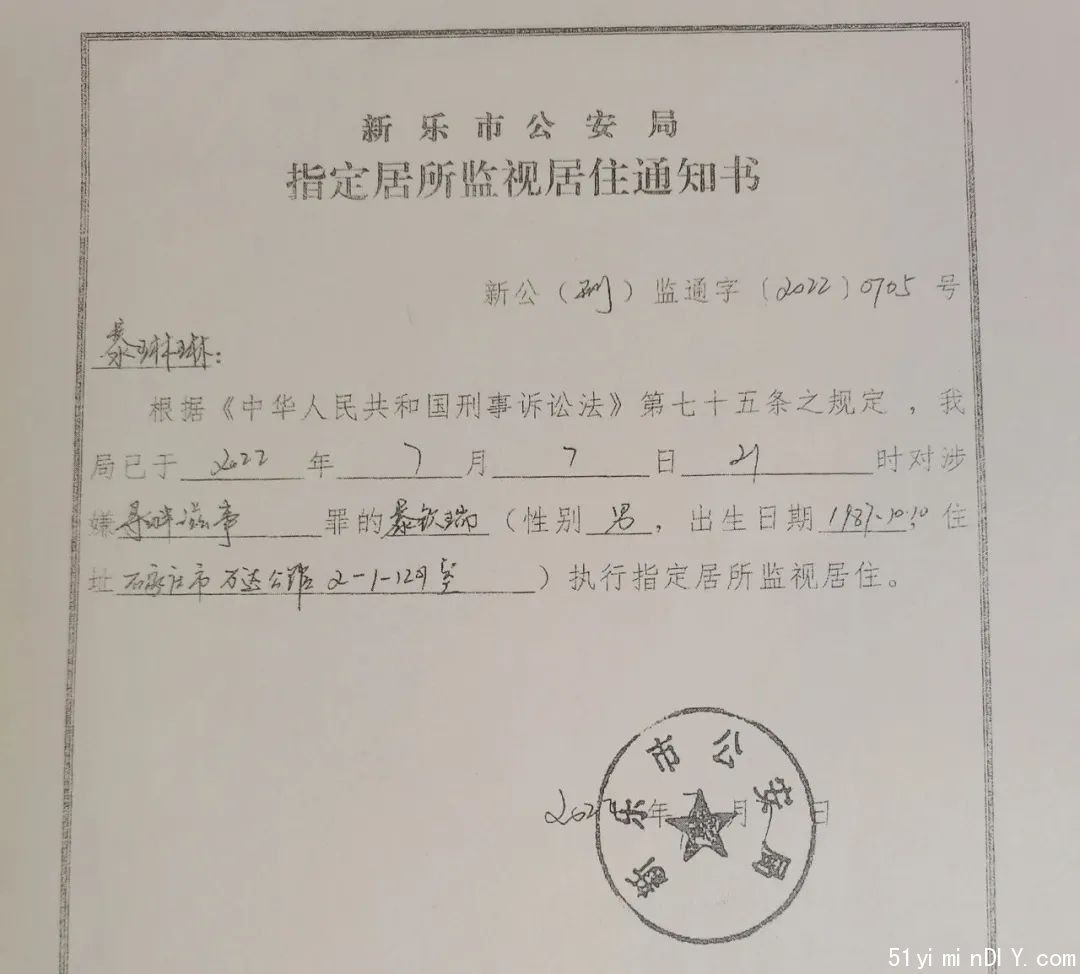 新乐市公安局
指定居所监视居住通知书
新公（刑）监通字〔2022〕0705号
暴琳琳：
根据《中华人民共和国刑事诉讼法》第七十五条之规定，我
局已于 2022 年 7 月 7 日 21 时对涉
嫌寻衅滋事 罪的暴钦瑞（性别 男，出生日期 1987.10.10 住
址石家庄市万达公馆 2-1-1207室 ）执行指定居所监视居住。
新乐市公安局
2022年7月 日
51yiminDIY.com